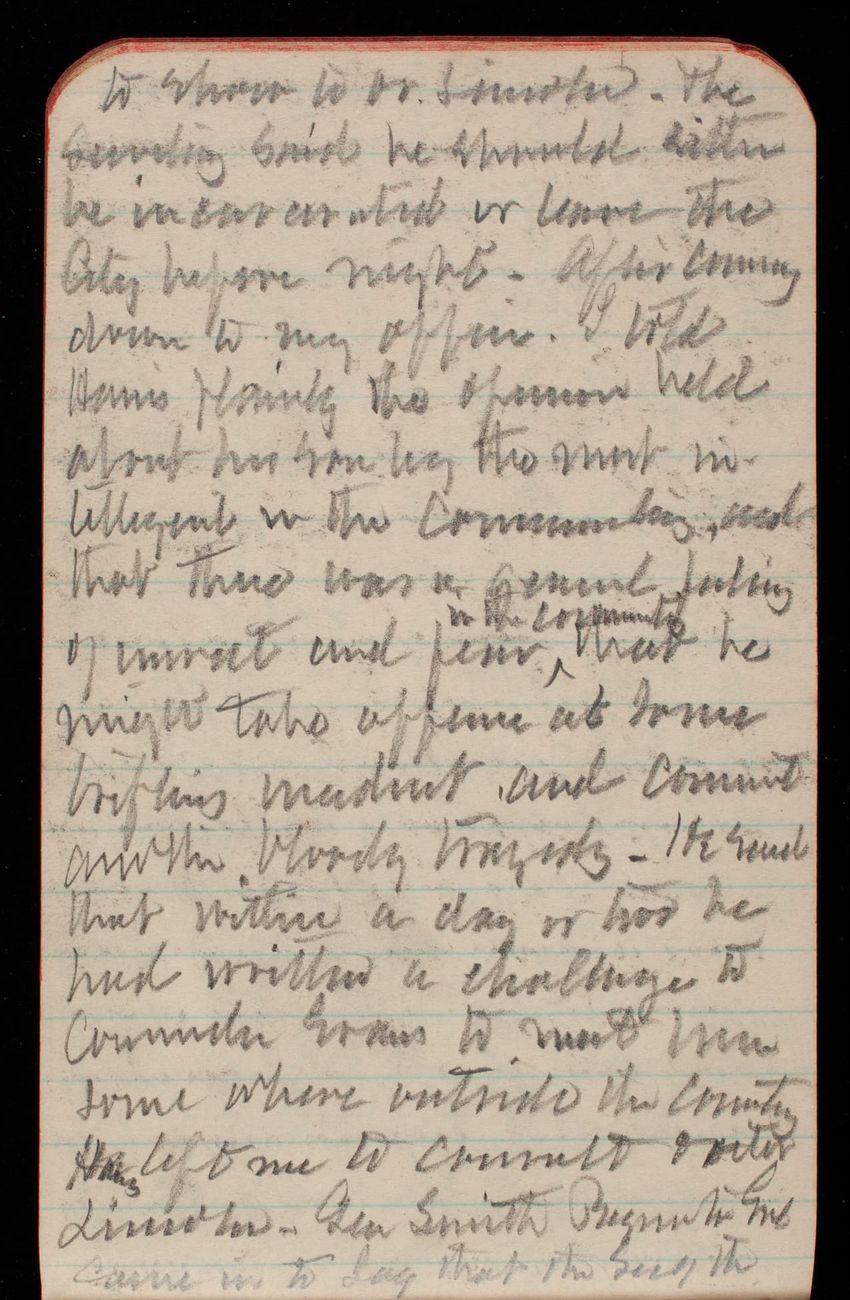 to show to Dr. Lincoln - The
Secretary said he should either
be incarcerated or leave the
City before night - After coming
down to my office. I told
Harris plainly the opinion held
about his son by the most in-
telligent in the community, and
that there was a general feeling
of unrest and fear, that he
in the community
might take offense at some
trifling incident, and commit
another bloody tragedy - He said
that within a day or two he
had written a challenge to
Commdr Evans to meet him
some where outside the country
left me to consult Doctor
Lincoln - Gen Smith
came in to say that the Secy